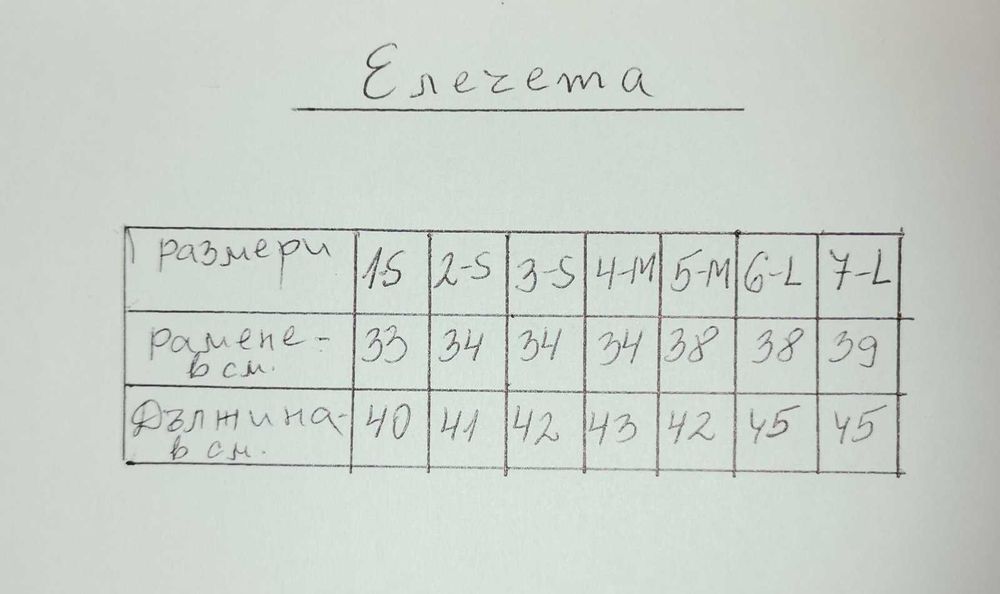 Елечета
размери 1-S 2-S 3-S 4-M 5-M 6-L 7-L
рамене- 33 34 34 34 38 38 39
в см.
Дължина- 40 41 42 43 42 45 45
в см.